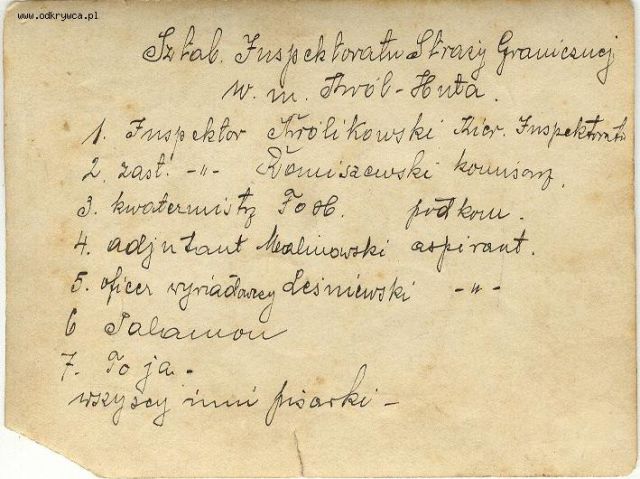 www.odkrywca.pl
Sztab. Inspektoratu Straży Granicznej
w. m. Król-Huta.
1. Inspektor Królikowski Kier. Inspektoratu
2. zast. -"- Romiszewski komisarz
3. kwatermistrz podkom.
4. adjutant Malinowski aspirant.
5. oficer wywiadowczy Leśniewski -"-
6 Palamon
7. To ja -
wszyscy inni pisarki -